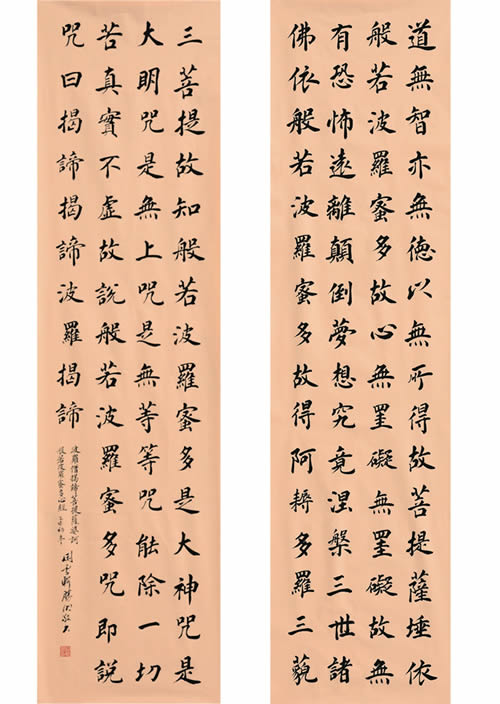 道無智亦無德以無所得故菩提薩埵依
般若波羅蜜多故心無罣礙無罣礙故無
有恐怖遠離顛倒夢想究竟涅槃三世諸
佛依般若波羅蜜多故得阿耨多羅三藐
三菩提故知般若波羅蜜多是大神咒是
大明咒是無上咒是無等等咒能除一切
苦真實不虛故說般若波羅蜜多咒即說
咒曰揭諦揭諦波羅揭諦
波羅僧揭諦菩提薩婆訶
般若波羅蜜多心經